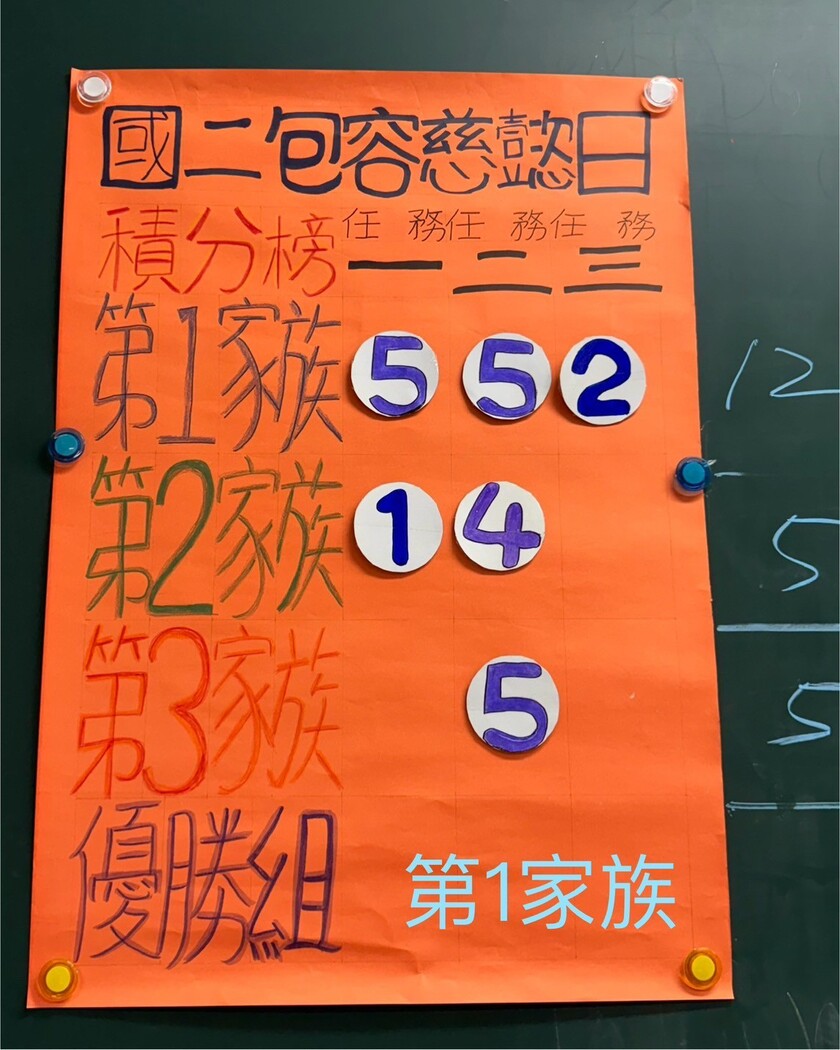 國二包容慈懿日
積分榜 任務一 任務二 任務三
第1家族 5 5 2 12
第2家族 1 4 5
第3家族 5 5
優勝組 第1家族